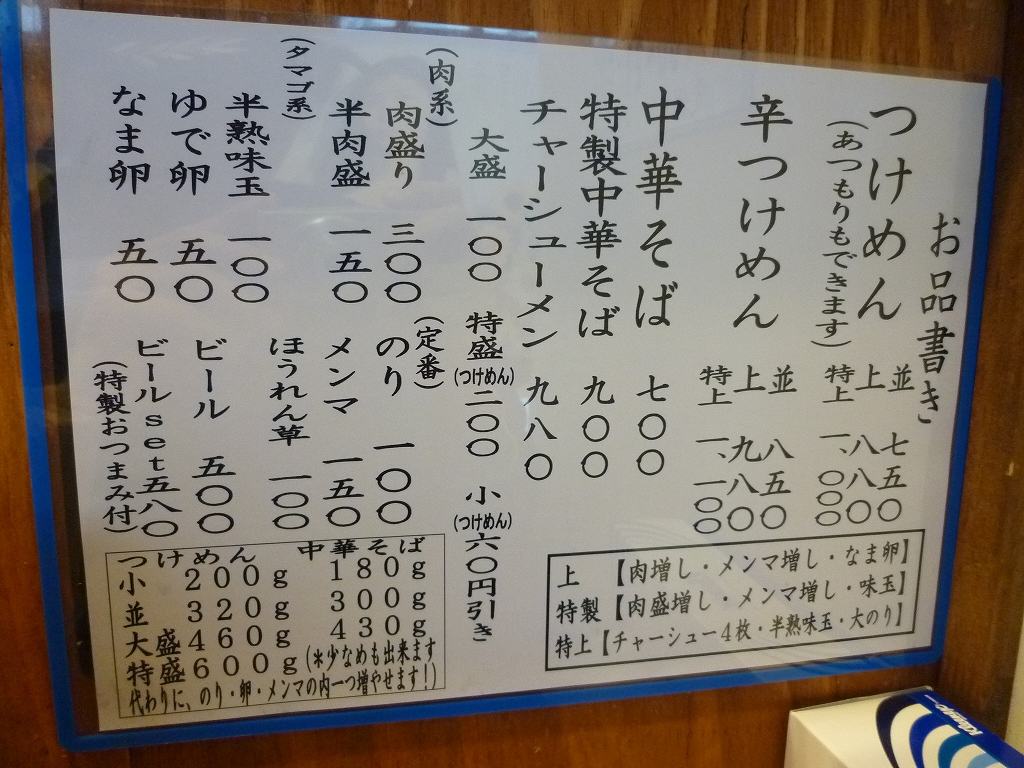 お品書き
つけめん
(あつもりもできます)
並 七五〇
上 八八〇
特上 一、〇〇〇
辛つけめん
並 八五〇
上 九八〇
特上 一、一〇〇
中華そば 七〇〇
特製中華そば 九〇〇
チャーシューメン 九八〇
大盛 一〇〇 特盛(つけめん)二〇〇 小(つけめん)六〇円引き
(肉系)
肉盛り 三〇〇
半肉盛 一五〇
(タマゴ系)
半熟味玉 一〇〇
ゆで卵 五〇
なま卵 五〇
(定番)
のり 一〇〇
メンマ 一五〇
ほうれん草 一〇〇
ビール 五〇〇
ビールset五八〇
(特製おつまみ付)
上 【肉増し・メンマ増し・なま卵】
特製【肉盛増し・メンマ増し・味玉】
特上【チャーシュー4枚・半熟味玉・大のり】
つけめん 中華そば
小 200g 180g
並 320g 300g
大盛460g 430g
特盛600g(※少なめも出来ます
代わりに、のり・卵・メンマの内一つ増やせます!)
Kleenex